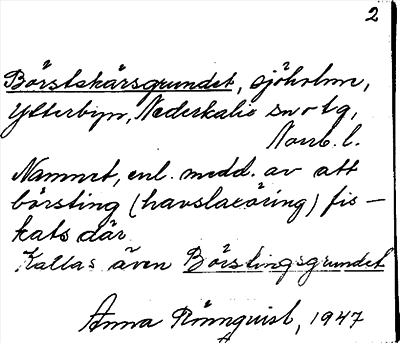 2
Börstskärsgrundet, sjöholme,
Ytterbyn, Nederkalix sn o tg,
Norrb. l.
Namnet, enl. medd. av att
börsting (havslaxöring) fis-
kats där.
Kallas även Börstingsgrundet
Anna Rönnquist, 1947